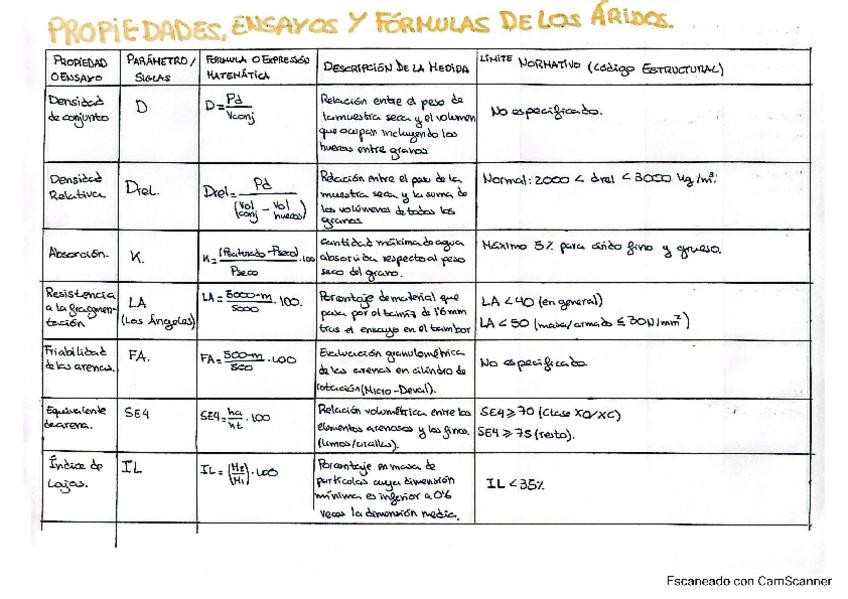 PROPIEDADES, ENSAYOS Y FÓRMULAS DE LOS ÁRIDOS.
PROPIEDAD O ENSAYO
PARÁMETRO / SIGLAS
FÓRMULA O EXPRESIÓN MATEMÁTICA
DESCRIPCIÓN DE LA MEDIDA
LÍMITE NORMATIVO (Código ESTRUCTURAL)
Densidad de conjunto
D
D = Pd / Vconj
Relación entre el peso de
la muestra seca y el volumen
que ocupan incluyendo los
huecos entre granos
No especificado.
Densidad Relativa
Drel.
Drel = Pd / (Vol conj - Vol huecos)
Relación entre el peso de la
muestra seca y la suma de
los volúmenes de todos los
granos
Normal: 2000 < drel < 3000 kg/m³.
Absorción.
K.
K = (Psaturado - Pseco) / Pseco . 100
cantidad máxima de agua
absorvida respecto al peso
seco del grano.
Máximo 5% para árido fino y grueso.
Resistencia
a la fragmen-
tación
LA
(Los Ángeles)
LA = 5000-m / 5000 . 100.
Porcentaje de material que
pasa por el tamiz de 1'6 mm
tras el ensayo en el tambor
LA < 40 (en general)
LA < 50 (masa/armado ≤ 30N/mm²)
Friabilidad
de las arenas.
FA.
FA = 500-m / 500 . 100
Evaluación granulométrica
de las arenas en cilindro de
rotación (Micro-Deval).
No especificado
Equivalente
de arena.
SE4
SE4 = ha / ht . 100
Relación volumétrica entre los
elementos arenosos y los finos.
(limos/arcillas).
SE4 ≥ 70 (Clase X0/XC)
SE4 ≥ 75 (resto).
Índice de
Lajas.
IL
IL = (M2 / M1) . 100
Porcentaje en masa de
partículas cuya dimensión
mínima es inferior a 0'6
veces la dimensión media.
IL < 35%
Escaneado con CamScanner